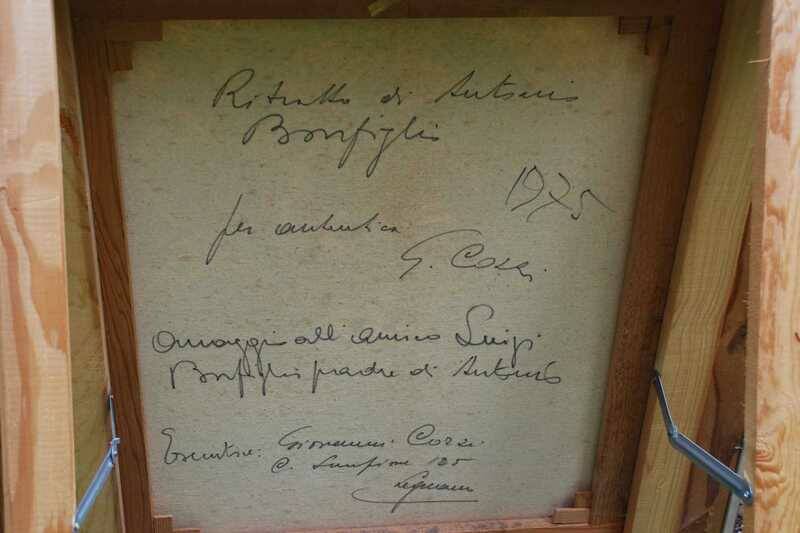 Ritratto di Antonio
Bonfiglio
1975
per autentica
G. Cozzi
Omaggio all'amico Luigi
Bonfiglio padre di Antonio
Esecutore: Giovanni Cozzi
C. Sempione 125
Legnano